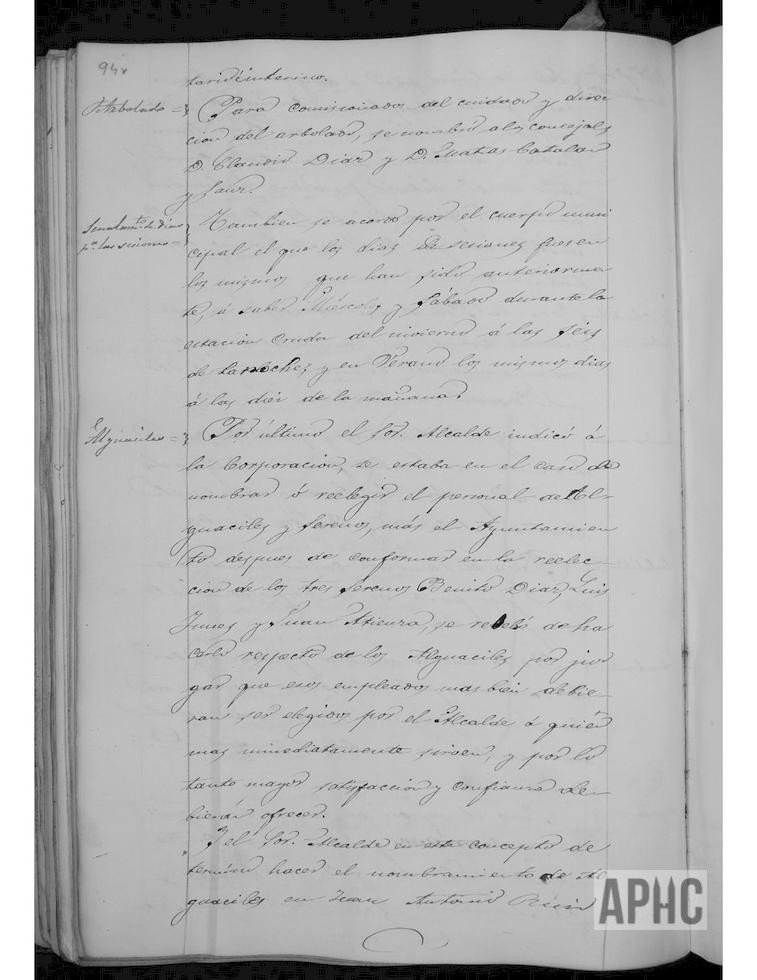 94v
tario interino.
Arbolado =
Para comisionados del cuidado y direc
cion del arbolado, se nombró, a los concejales
D. Claudio Diaz y D. Matias Catalan
y Sanz.
Señalam.to de dias
p.a las sesiones =
Tambien se acordó por el cuerpo muni
cipal el que los dias de sesiones fuesen
los mismos que han sido anteriormen
te, á saber Miércoles y Sábado durante la
estacion cruda del invierno á las seis
de la noche, y en Verano los mismos dias
á las diez de la mañana.
Alguaciles =
Por último el Sor. Alcalde indicó á
la Corporacion, se estaba en el caso de
nombrar ó reelegir el personal de Al-
guaciles y Serenos, más el Ayuntamien
to despues de conformar en la reelec-
cion de los tres Serenos Benito Diaz, Luis
y Juan Atienza, se relevó de ha
cerlo respecto de los Alguaciles por juz
gar que esos empleados mas bien debie-
ran ser elegidos por el Alcalde á quién
mas inmediatamente sirven, y por lo
tanto mayor satisfaccion y confianza de-
bierán ofrecer.
Y el Sor. Alcalde en este concepto de
terminó hacer el nombramiento de Al
guaciles en Juan Antonio
APHC